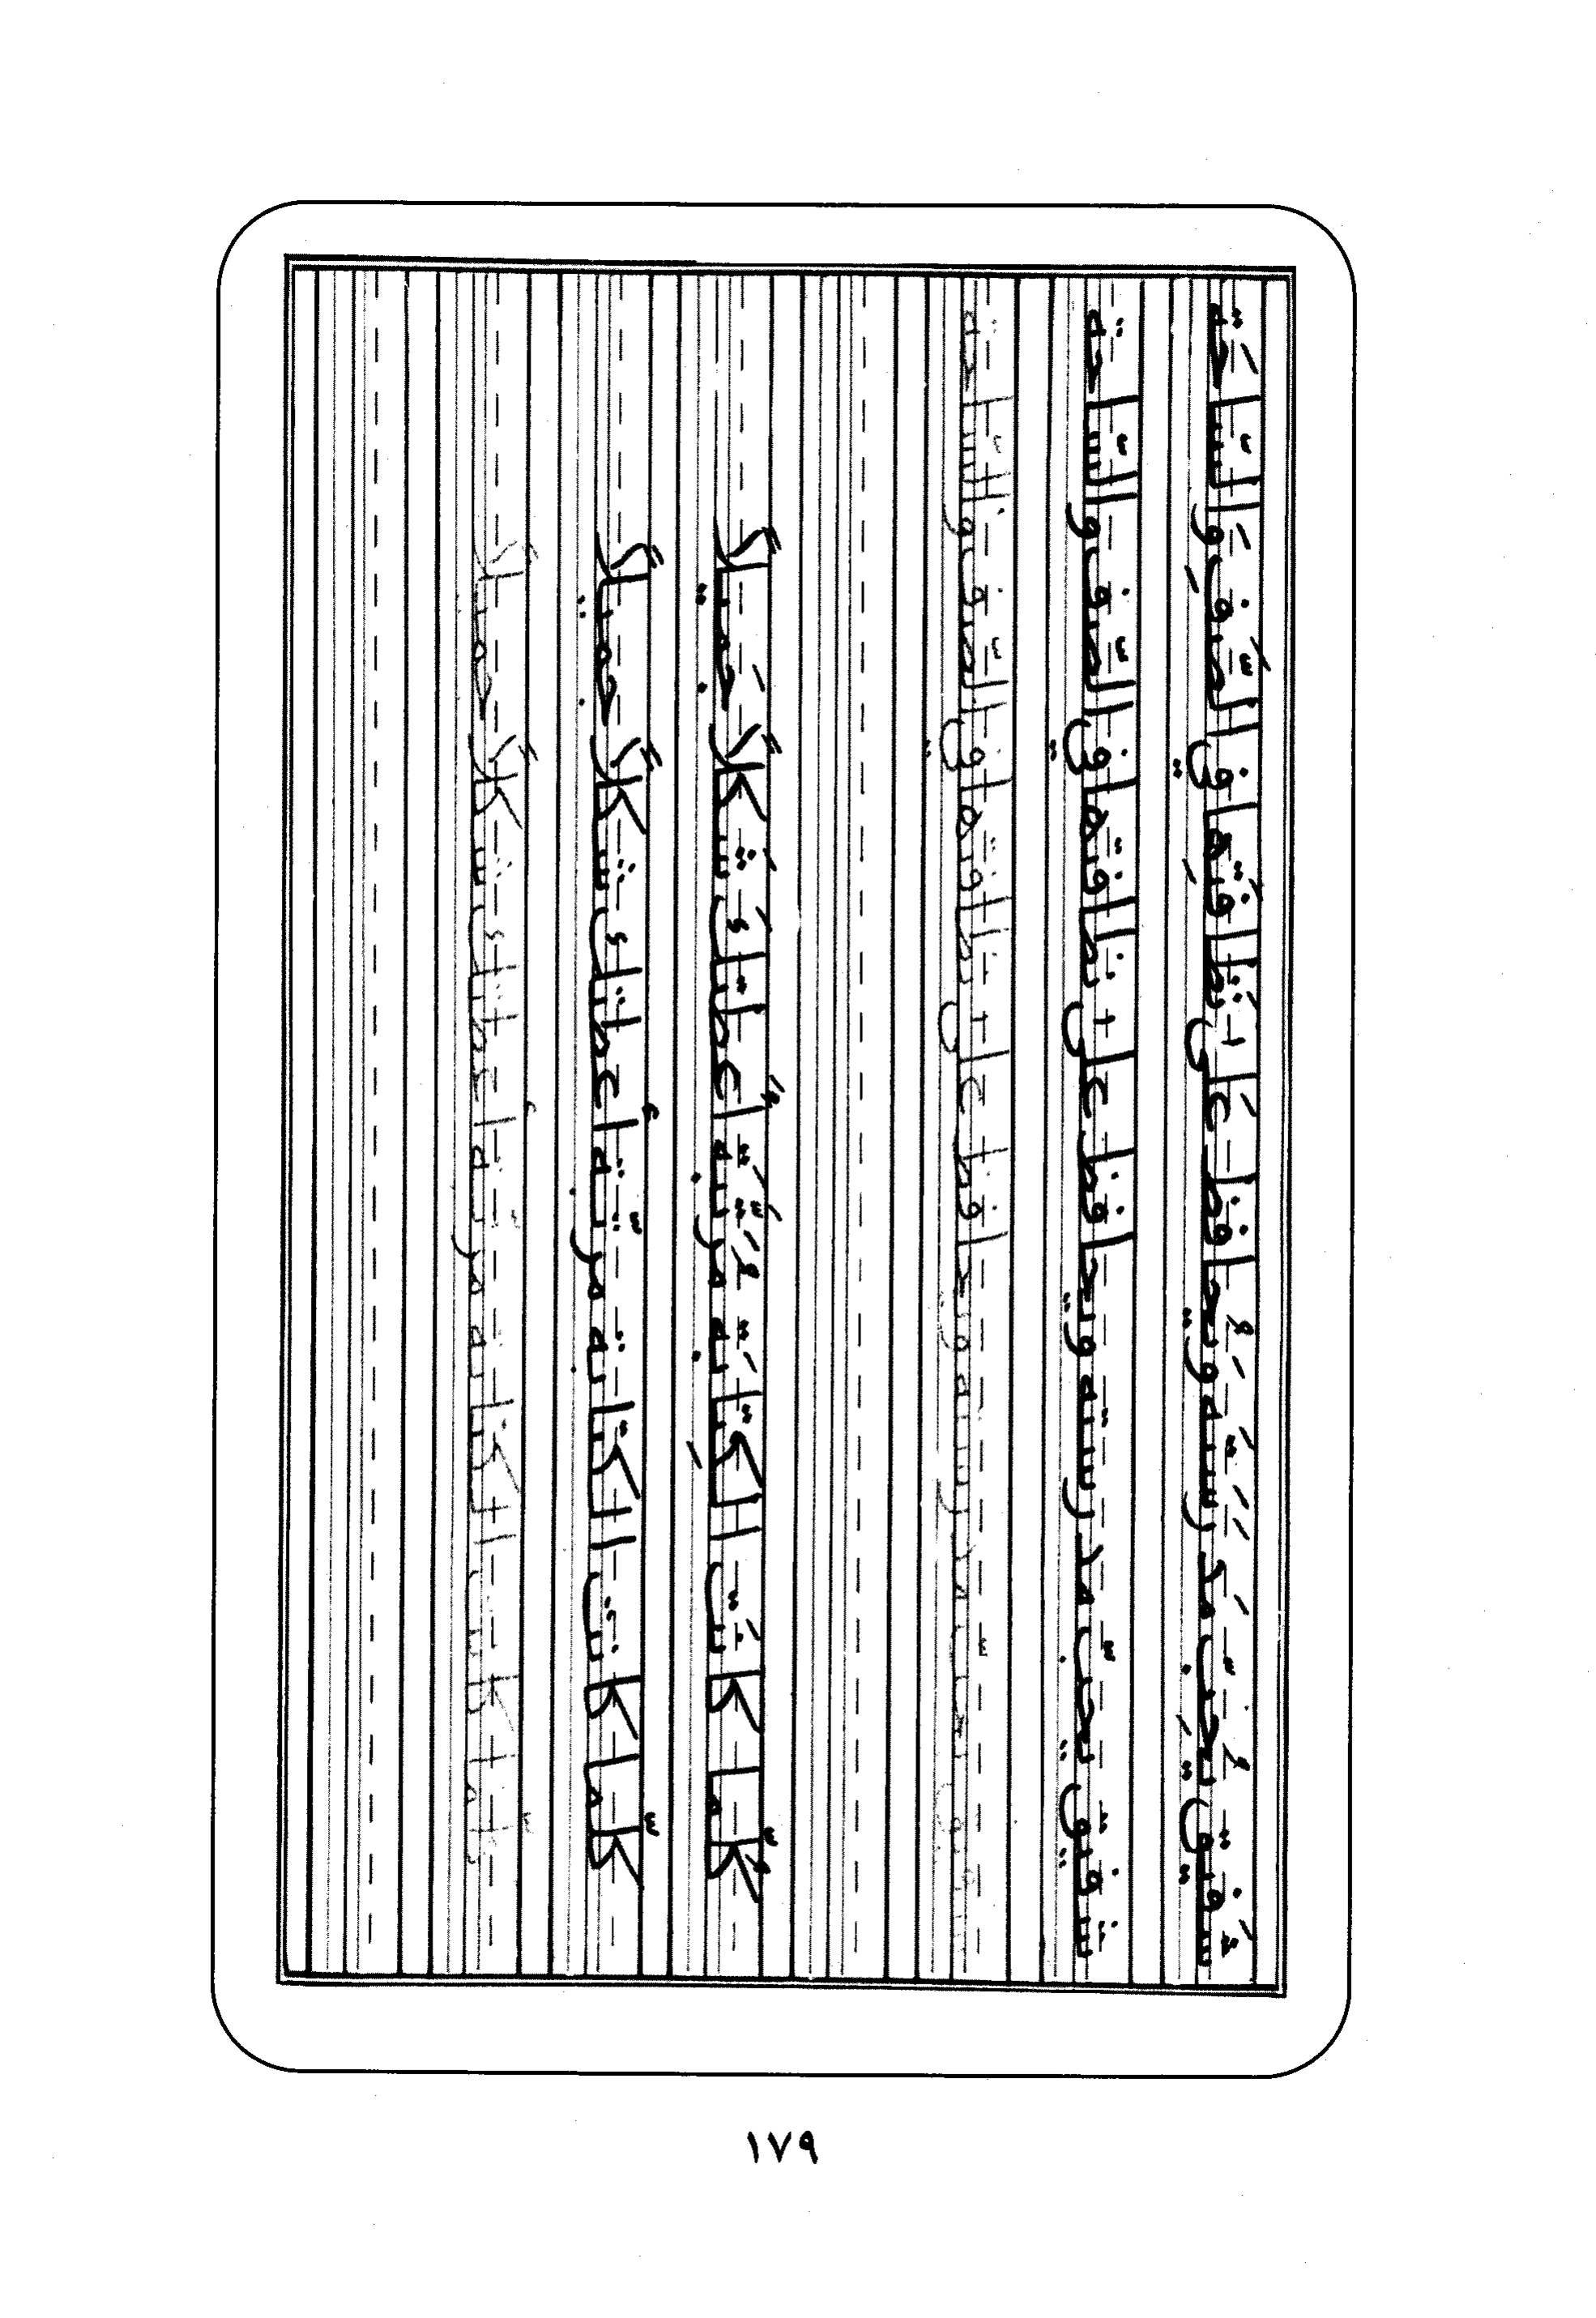 شَفيق يُحِبّ مَدرَسَتَه وَيُحافظ عَلى نَظافَتِها في الصَّفِ وَالسّاحَة
شفيق يحبّ مدرسته ويحافظ على نظافتها في الصّف والسّاحة
شفيق يحبّ مدرسته ويحافظ على نظافتها في الصّف والسّاحة
كُلّما كانَت الكِتابَة مُرَتَّبَة أَعطتكَ شَكلاً جَميلاً
كلّما كانت الكتابة مرتّبة أعطتك شكلاً جميلاً
كلّما كانت الكتابة مرتّبة أعطتك شكلاً جميلاً
١٧٩